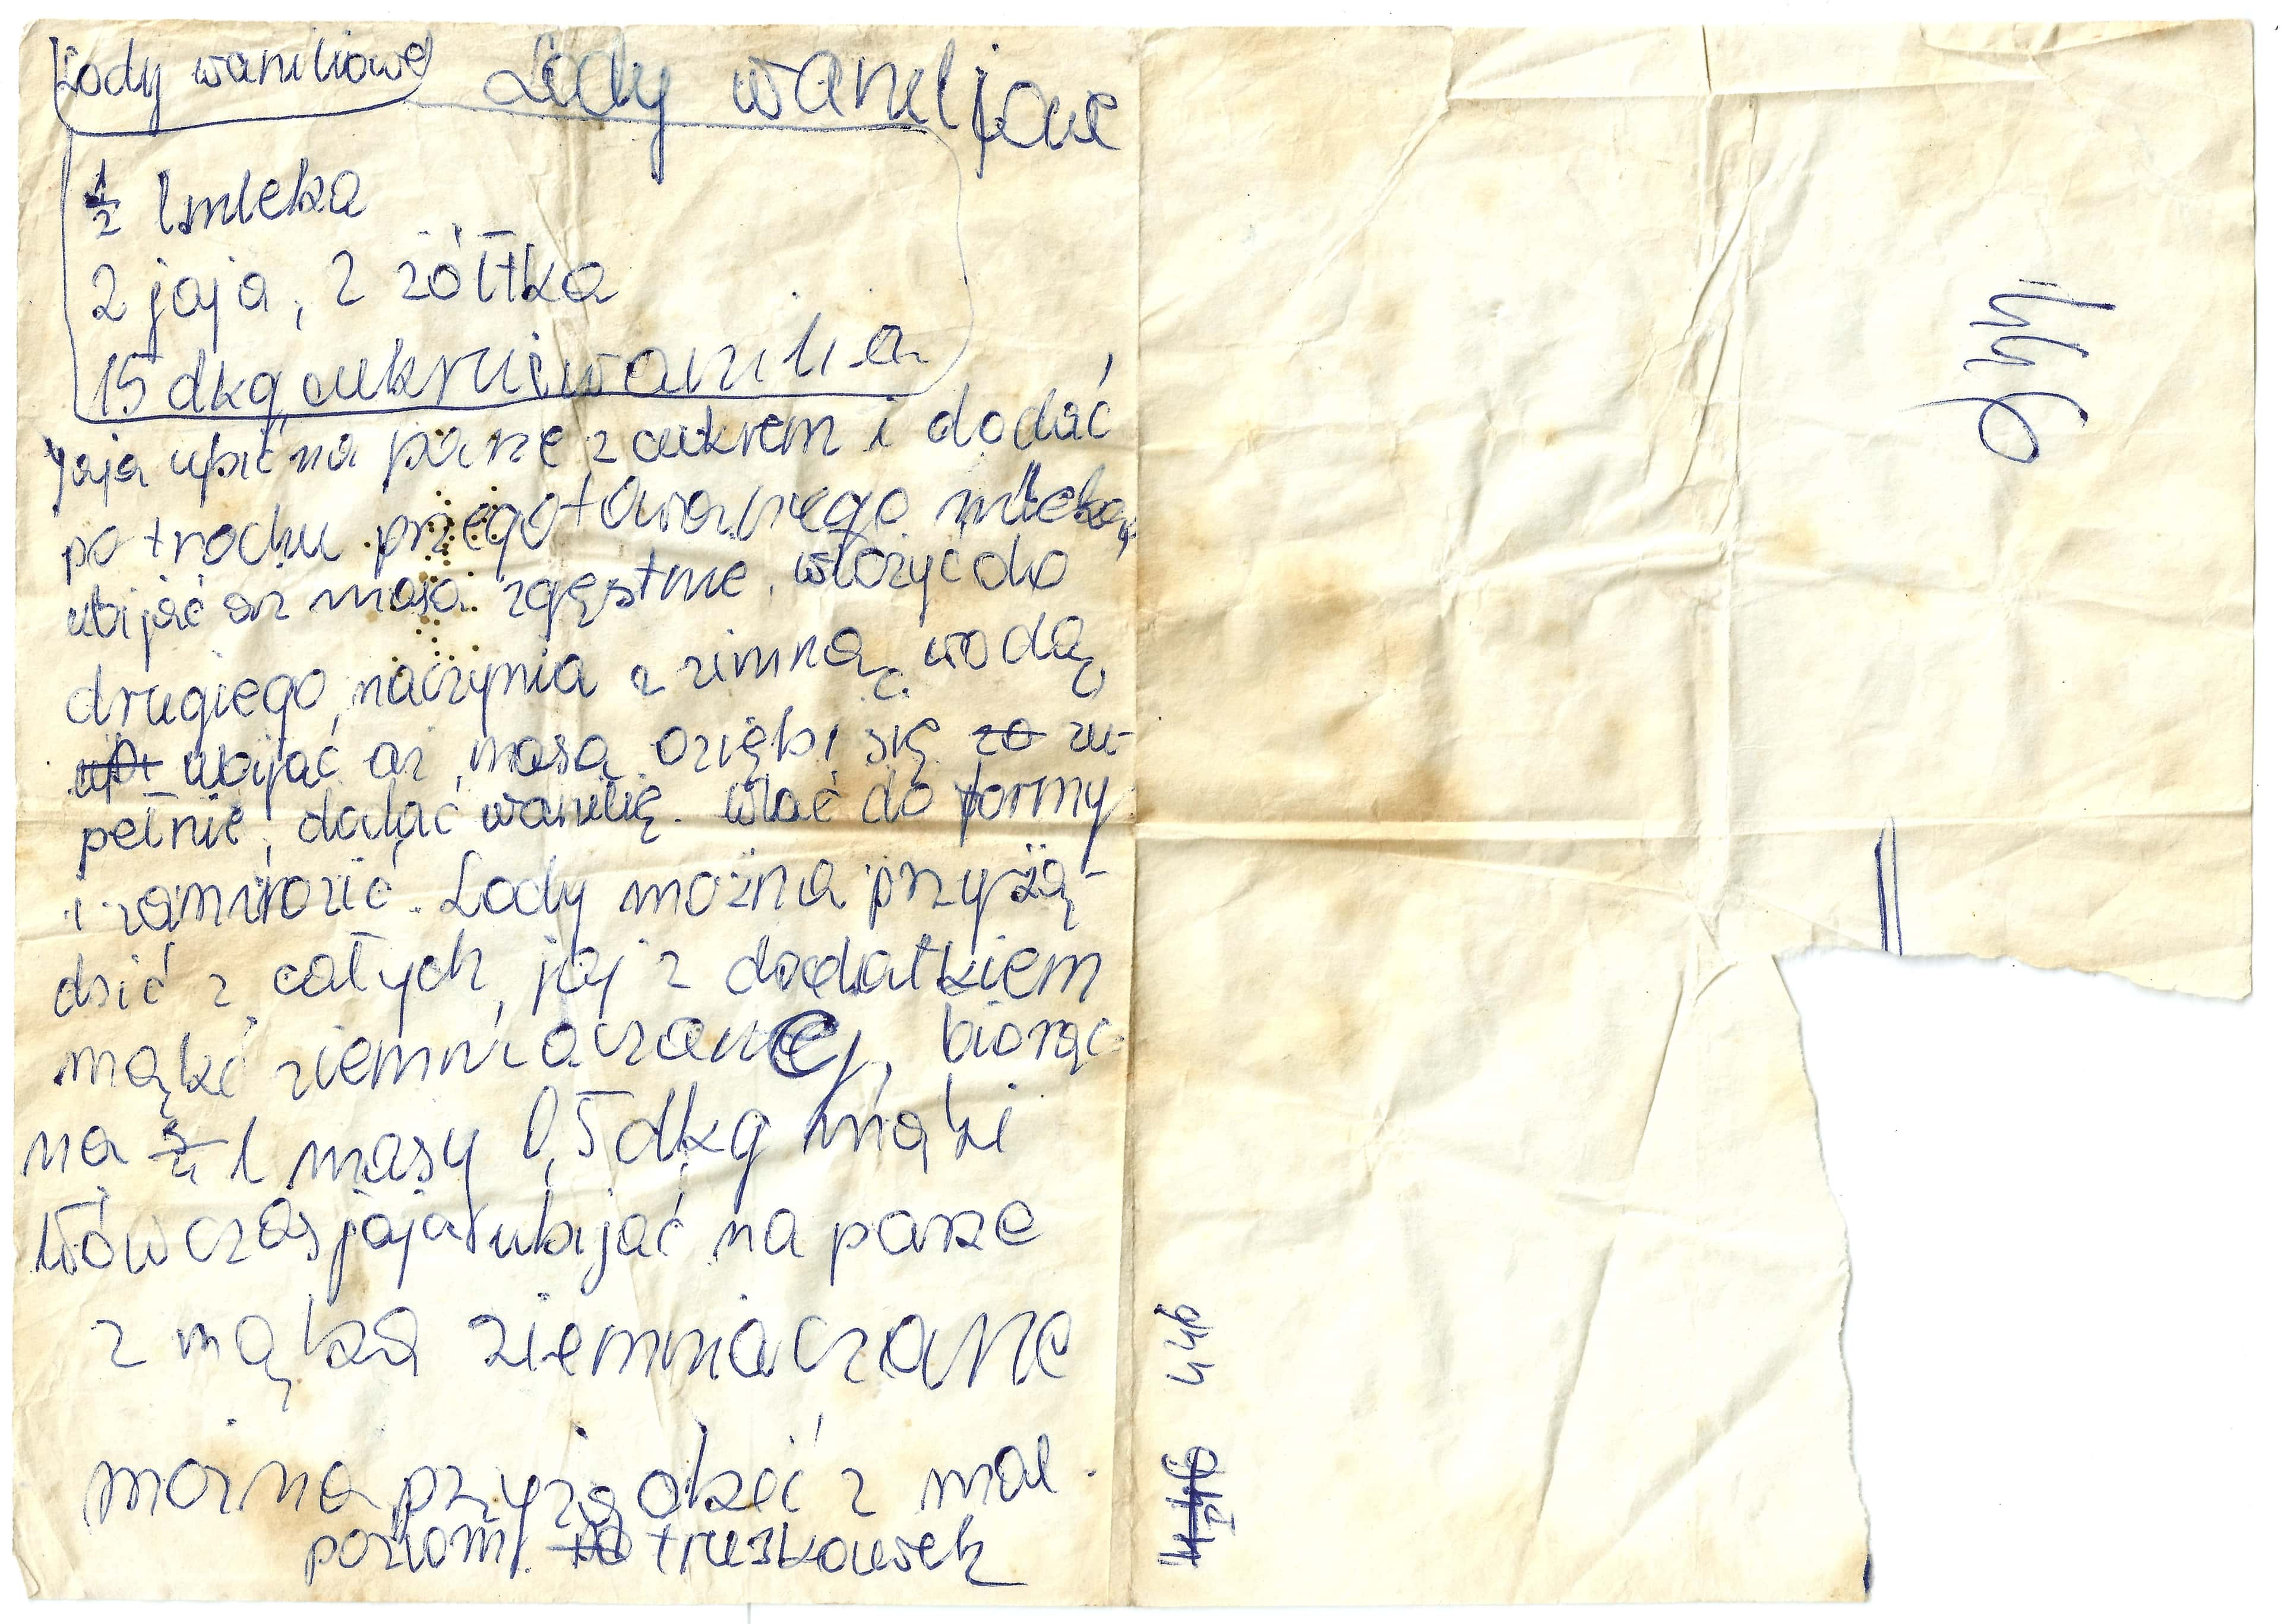 Lody waniliowe Lody waneljowe
1/2 l mleka
2 jaja, 2 żółtka
15 dkg cukru i wanilia
Jaja ubić na parze z cukrem i dodać
po trochu przegotowanego mleka,
ubijać aż masa zgęstnie. włożyć do
drugiego naczynia z zimną wodą
ubijać aż masa oziębi się zu-
pełnie, dodać wanilię. wlać do formy
i zamrozić. Lody można przyżą-
dsić z całych jaj z dodatkiem
mąki ziemniaczanej, biorąc
na 3/4 l masy 1,5 dkg mąki
Wówczas jaja ubijać na parze
z mąką ziemniaczane
można przyrządzić z mal.
poziom. truskawek
44b